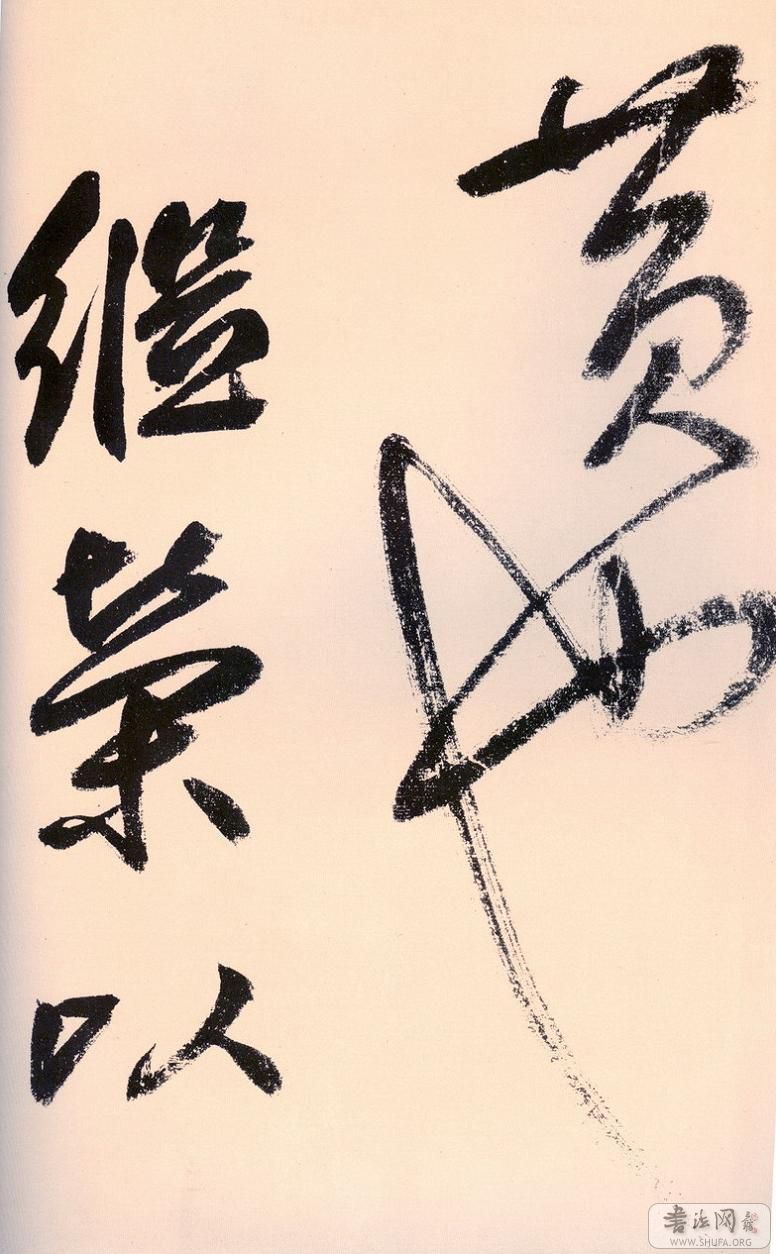 黄
繼榮以
書法网
WWW.SHUFA.ORG